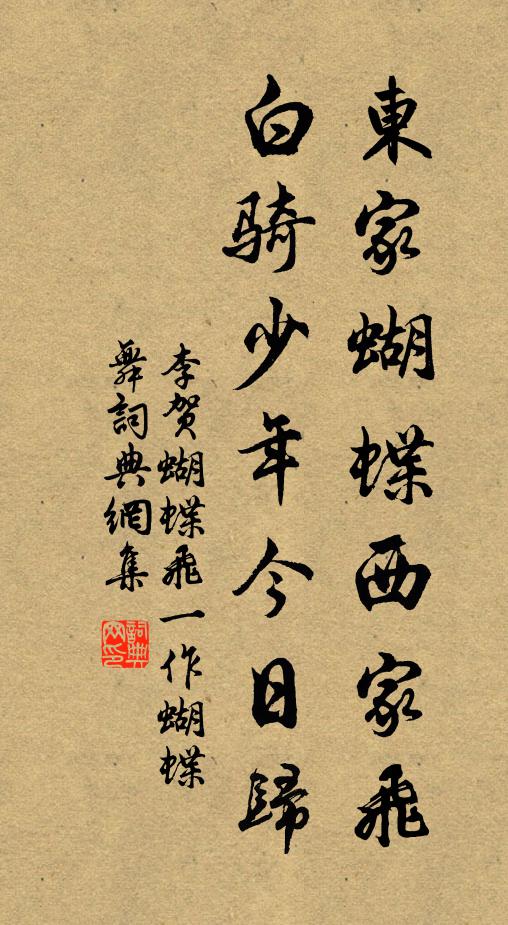 東家蝴蝶西家飛
白騎少年今日歸
李賀蝴蝶飛一作蝴蝶
舞詞典網集
詞典
网印